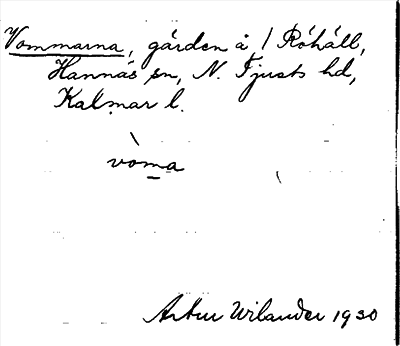 Vommarna, gården å 1 Röhäll,
Hannäs sn, N. Tjusts hd,
Kalmar l.
voma
Artur Wilander 1930